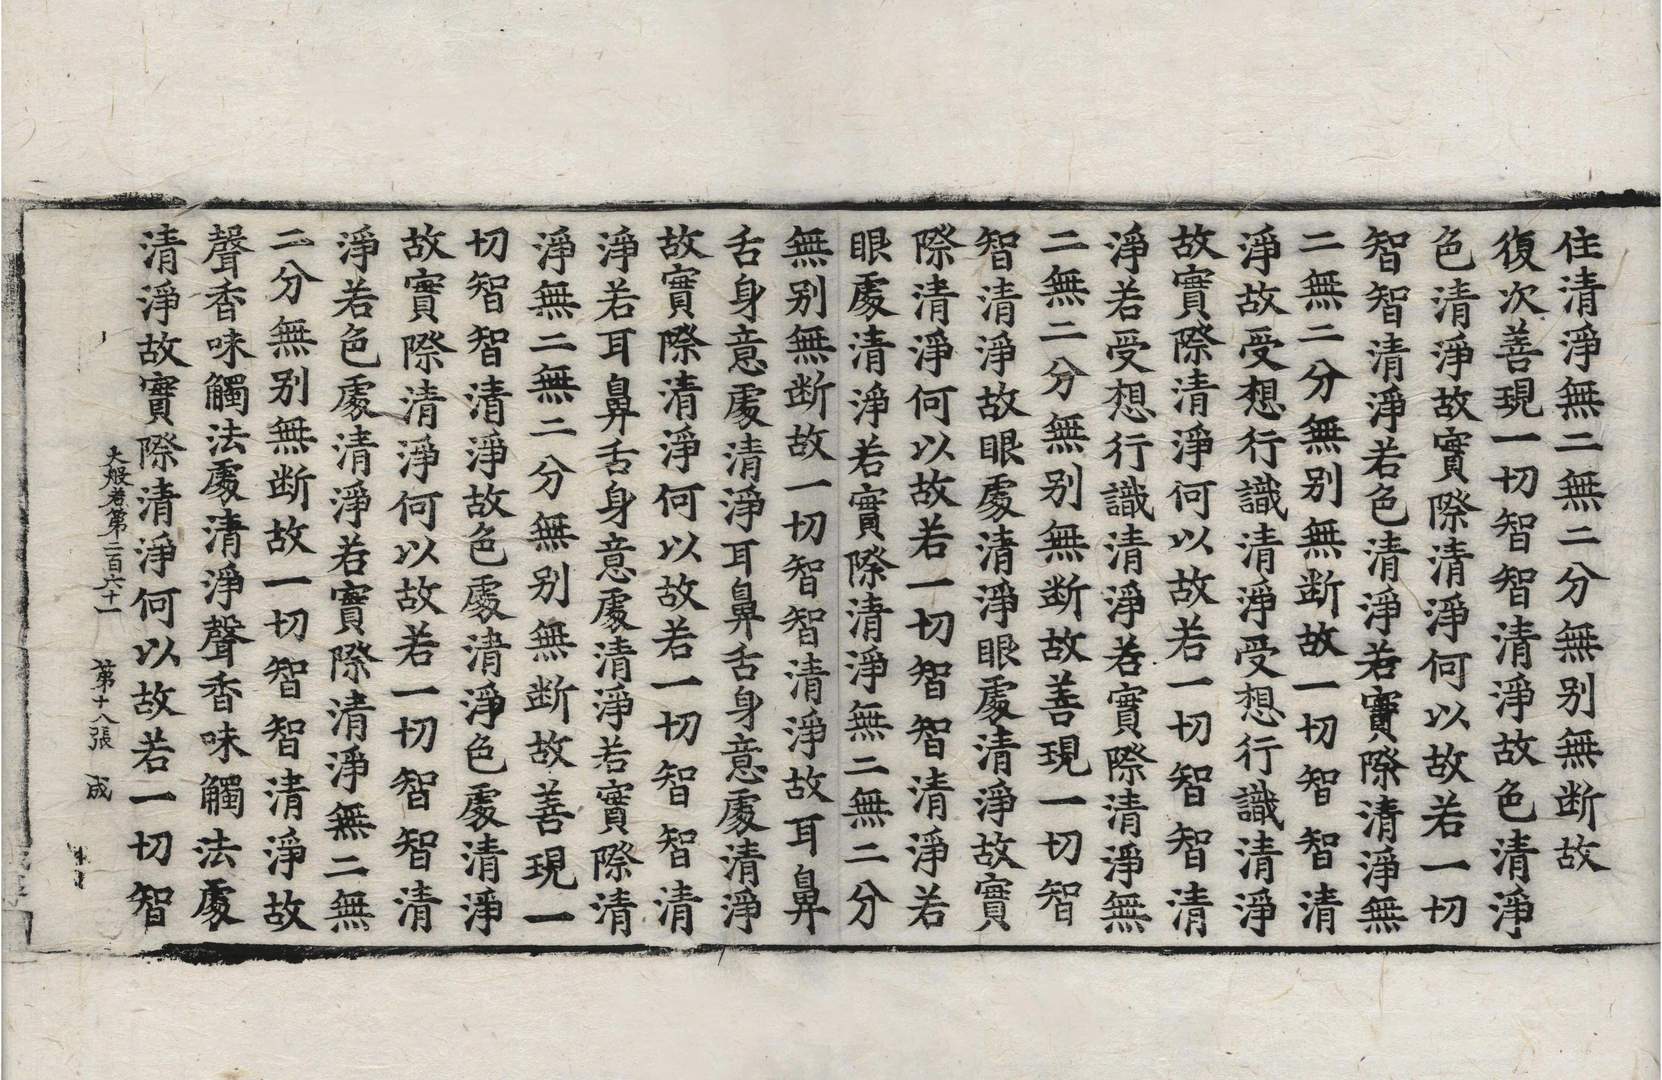 住清淨無二無二分無別無断故
復次善現一切智智清淨故色清淨
色清淨故實際清淨何以故若一切
智智清淨若色清淨若實際清淨無
二無二分無別無断故一切智智清
淨故受想行識清淨受想行識清淨
故實際清淨何以故若一切智智清
淨若受想行識清淨若實際清淨無
二無二分無別無断故善現一切智
智清淨故眼處清淨眼處清淨故實
際清淨何以故若一切智智清淨若
眼處清淨若實際清淨無二無二分
無別無断故一切智智清淨故耳鼻
舌身意處清淨耳鼻舌身意處清淨
故實際清淨何以故若一切智智清
淨若耳鼻舌身意處清淨若實際清
淨無二無二分無別無断故善現一
切智智清淨故色處清淨色處清淨
故實際清淨何以故若一切智智清
淨若色處清淨若實際清淨無二無
二分無別無断故一切智智清淨故
聲香味觸法處清淨聲香味觸法處
清淨故實際清淨何以故若一切智
大般若第二百六十一 第十八張 成